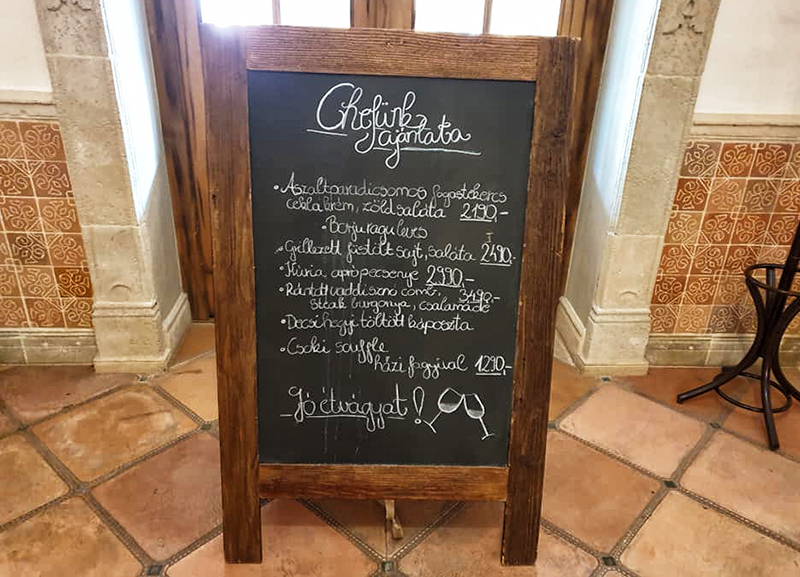 Chefünk
ajánlata
• Aszaltparadicsomos fogastekercs
céklakrém, zöldsaláta 2190,-
• Borjuraguleves
• Grillezett füstölt sajt, saláta 2490,-
• Húria aprópecsenye 2990,-
• Rántott vaddisznó comb, 3490,-
steak burgonya, csalamádé
• Decsihegyi töltött káposzta
• Csoki souffle
házi fagyival 1290,-
Jó étvágyat!